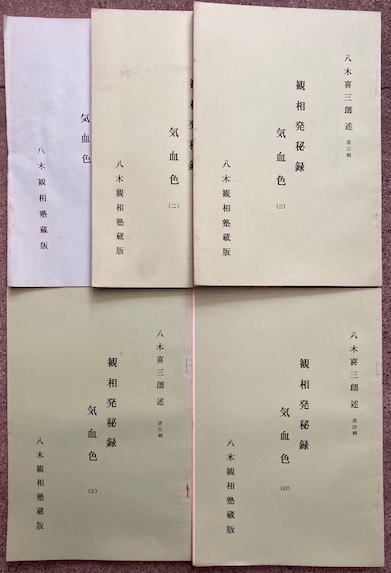 八木喜三朗述 第三輯
観相発秘録
気血色 (三)
八木観相塾蔵版
気血色 (二)
八木観相塾蔵版
気血色
八木観相塾蔵版
八木喜三朗述 第四輯
観相発秘録
気血色 (四)
八木観相塾蔵版
八木喜三朗述 第五輯
観相発秘録
気血色 (五)
八木観相塾蔵版